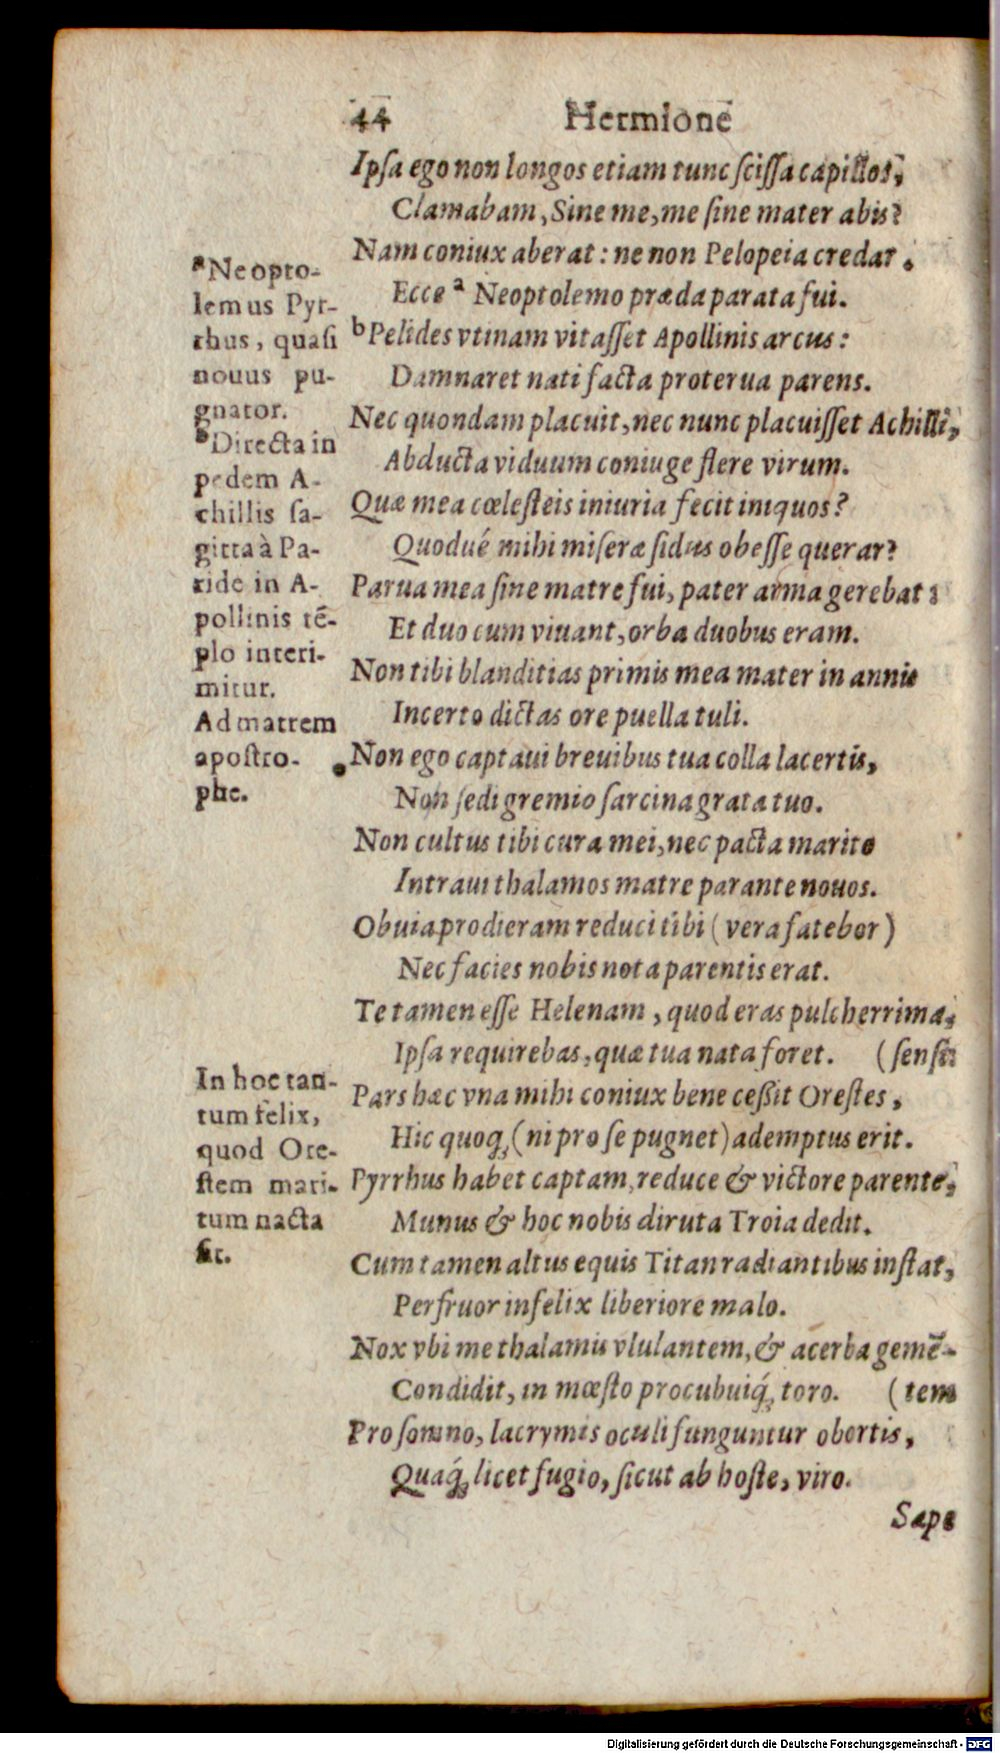 44 Hermione
Ipſa ego non longos etiam tunc ſciſſa capillos,
Clamabam, Sine me, me ſine mater abis?
Nam coniux aberat: ne non Pelopeia credar.
Ecce ᵃ Neoptolemo præda parata fui.
ᵇPelides vtinam vitaſſet Apollinis arcus:
Damnaret nati facta proterua parens.
Nec quondam placuit, nec nunc placuiſſet Achilli,
Abducta viduum coniuge flere virum.
Quæ mea cœleſteis iniuria fecit iniquos?
Quodué mihi miſeræ ſidus obeſſe querar?
Parua mea ſine matre fui, pater arma gerebat:
Et duo cum viuant, orba duobus eram.
Non tibi blanditias primis mea mater in annis
Incerto dictas ore puella tuli.
Non ego captaui breuibus tua colla lacertis,
Non ſedi gremio ſarcina grata tuo.
Non cultus tibi cura mei, nec pacta marito
Intraui thalamos matre parante nouos.
Obuia prodieram reduci tibi (vera fatebor)
Nec facies nobis nota parentis erat.
Te tamen eſſe Helenam, quod eras pulcherrima,
Ipſa requirebas, quæ tua nata foret. (ſenſi:
Pars hæc vna mihi coniux bene ceßit Oreſtes,
Hic quoq; (ni pro ſe pugnet) ademptus erit.
Pyrrhus habet captam, reduce & victore parente,
Munus & hoc nobis diruta Troia dedit.
Cum tamen altus equis Titan radiantibus inſtat,
Perfruor infelix liberiore malo.
Nox vbi me thalamis vlulantem, & acerba gemē-
Condidit, in mœſto procubuiq́; toro. (tem
Pro ſomno, lacrymis oculi funguntur obortis,
Quaq́; licet fugio, ſicut ab hoſte, viro.
Sæpe
ᵃNeopto-
lemus Pyr-
rhus, quaſi
nouus pu-
gnator.
ᵇDirecta in
pedem A-
chillis ſa-
gitta à Pa-
ride in A-
pollinis tē-
plo interi-
mitur.
Ad matrem
apoſtro-
phe.
In hoc tan-
tum felix,
quod Ore-
ſtem mari-
tum nacta
ſit.
Digitalisierung gefördert durch die Deutsche Forschungsgemeinschaft - DFG